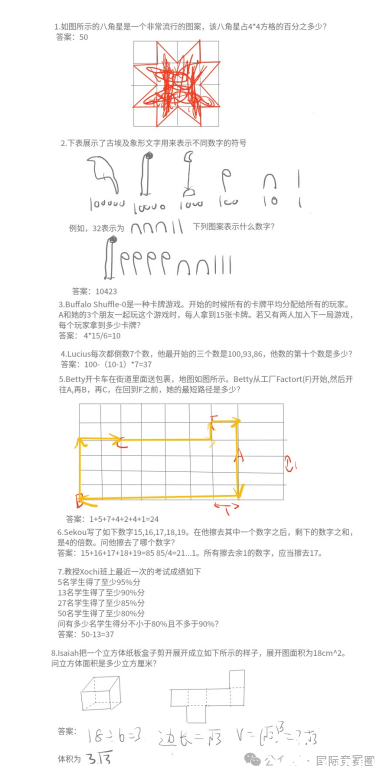 1.如图所示的八角星是一个非常流行的图案，该八角星占4*4方格的百分之多少？
答案：50
2.下表展示了古埃及象形文字用来表示不同数字的符号
100000 10000 1000 100 10 1
例如，32表示为 下列图案表示什么数字？
答案：10423
3.Buffalo Shuffle-0是一种卡牌游戏。开始的时候所有的卡牌平均分配给所有的玩家。
A和她的3个朋友一起玩这个游戏时，每人拿到15张卡牌。若又有两人加入下一局游戏，
每个玩家拿到多少卡牌？
答案： 4*15/6=10
4.Lucius每次都倒数7个数，他最开始的三个数是100,93,86，他数的第十个数是多少？
答案：100-（10-1）*7=37
5.Betty开卡车在街道里面送包裹，地图如图所示。Betty从工厂Factort(F)开始,然后开
往A,再B，再C，在回到F之前，她的最短路径是多少？
F
C
A
B
1
答案：1+5+7+4+2+4+1=24
6.Sekou写了如下数字15,16,17,18,19。在他擦去其中一个数字之后，剩下的数字之和，
是4的倍数。问他擦去了哪个数字？
答案：15+16+17+18+19=85 85/4=21...1。所有擦去余1的数字，应当擦去17。
7.教授Xochi班上最近一次的考试成绩如下
5名学生得了至少95%分
13名学生得了至少90%分
27名学生得了至少85%分
50名学生得了至少80%分
问有多少名学生得分不小于80%且不多于90%？
答案：50-13=37
8.Isaiah把一个立方体纸板盒子剪开展开成立如下所示的样子，展开图面积为18cm^2。
问立方体面积是多少立方厘米？
答案： 18÷6=3 边长=√3 V=(√3)³=3√3
体积为 3√3
国际竞赛圈